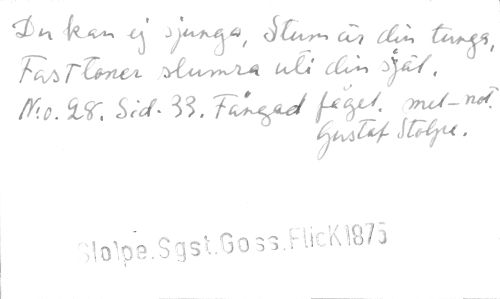 Du kan ej sjunga, Stum är din tunga,
Fast toner slumra uti din själ.
N:o. 28. Sid. 33. Fångad fågel. mel-not.
Gustaf Stolpe.
Stolpe.Sgst.Goss.FlicK1875